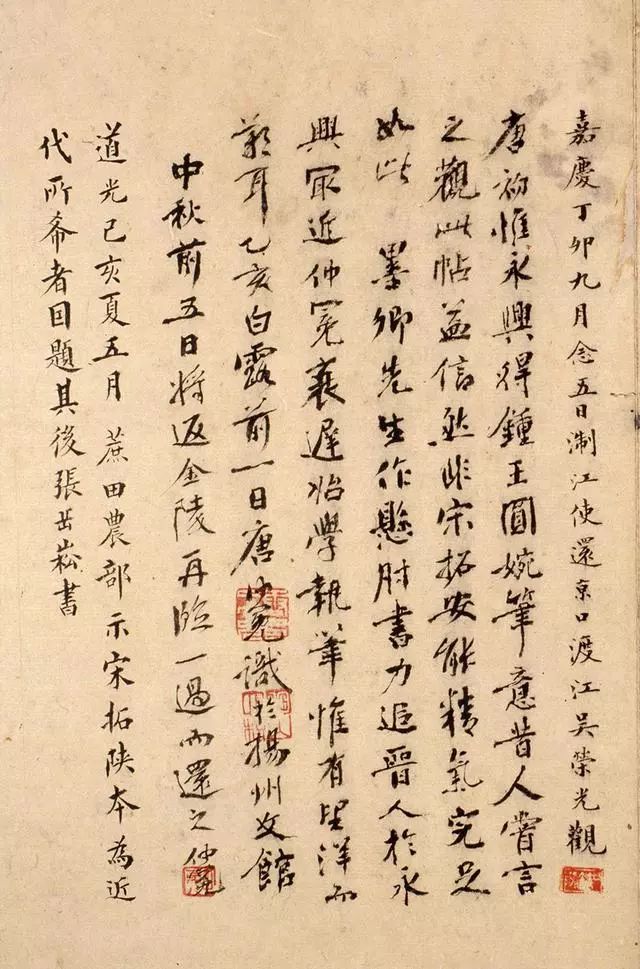 嘉慶丁卯九月念五日淛江使還京口渡江吳榮光觀
唐初惟永興得鍾王圓婉筆意昔人嘗言
之觀此帖益信然非宋拓安能精氣完足
如此 墨卿先生作懸肘書力追晉人於永
興冣近仲冕衰遲始學執筆惟有望洋而
歎耳乙亥白露前一日唐仲冕識於揚州文館
中秋前五日將返金陵再臨一過而還之仲冕
道光己亥夏五月 蔗田農部示宋拓陝本為近
代所希者囙題其後張岳崧書